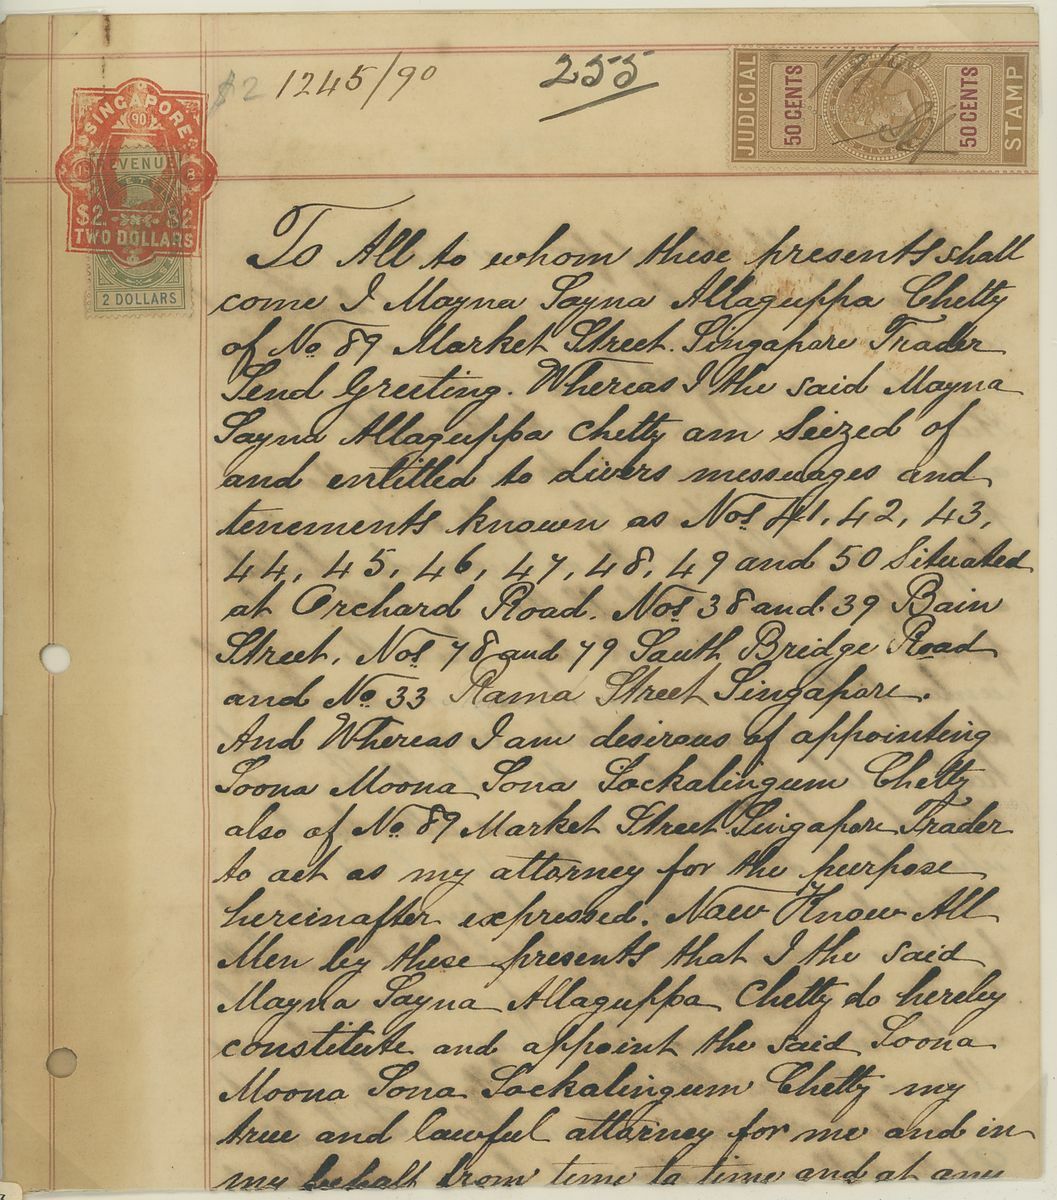 $2 1245/90
255
JUDICIAL
50 CENTS
50 CENTS
STAMP
SINGAPORE
90
18
REVENUE
$2 $2
TWO DOLLARS
2 DOLLARS
To All to whom these presents shall
come I Mayna Sayna Allaguppa Chetty
of No 89 Market Street. Singapore Trader
Send Greeting. Whereas I the said Mayna
Sayna Allaguppa Chetty am Seized of
and entitled to divers messuages and
tenements known as Nos 41, 42, 43,
44, 45, 46, 47, 48, 49 and 50 Situated
at Orchard Road. Nos 38 and 39 Bain
Street. Nos 78 and 79 South Bridge Road
and No 33 Rama Street Singapore.
And Whereas I am desirous of appointing
Soona Moona Sona Sockalingum Chetty
also of No 89 Market Street Singapore Trader
to act as my attorney for the purpose
hereinafter expressed. Now Know All
Men by these presents that I the said
Mayna Sayna Allaguppa Chetty do hereby
constitute and appoint the said Soona
Moona Sona Sockalingum Chetty my
true and lawful attorney for me and in
my behalf from time to time and at any